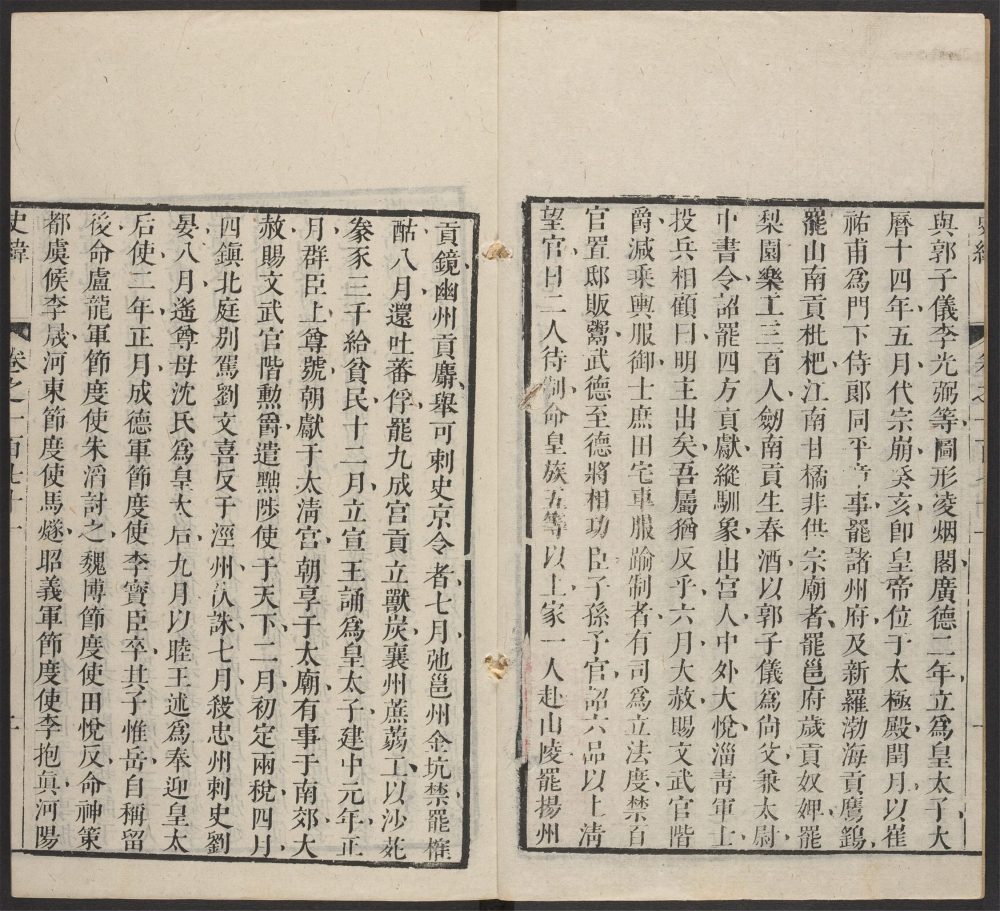 與郭子儀李光弼等圖形凌烟閣廣德二年立爲皇太子大
曆十四年五月代宗崩癸亥卽皇帝位于太極殿閏月以崔
祐甫爲門下侍郎同平章事罷諸州府及新羅渤海貢鷹鷂
罷山南貢枇杷江南甘橘非供宗廟者罷邕府歲貢奴婢罷
梨園樂工三百人劒南貢生春酒以郭子儀爲尙父兼太尉
中書令詔罷四方貢獻縱馴象出宮人中外大悅淄靑軍士
投兵相顧曰明主出矣吾屬猶反乎六月大赦賜文武官階
爵減乘輿服御士庶田宅車服踰制者有司爲立法度禁百
官置邸販鬻武德至德將相功臣子孫予官詔六品以上淸
望官日二人待制命皇族五等以上家一人赴山陵罷揚州
貢鏡幽州貢麝舉可刺史京令者七月弛邕州金坑禁罷榷
酤八月還吐蕃俘罷九成宮貢立獸炭襄州蔗蒻工以沙苑
豢豕三千給貧民十二月立宣王誦爲皇太子建中元年正
月群臣上尊號朝獻于太淸宮朝享于太廟有事于南郊大
赦賜文武官階勲爵遣黜陟使于天下二月初定兩稅四月
四鎭北庭别駕劉文喜反于涇州伏誅七月殺忠州刺史劉
晏八月遙尊母沈氏爲皇太后九月以睦王述爲奉迎皇太
后使二年正月成德軍節度使李寶臣卒其子惟岳自稱留
後命盧龍軍節度使朱滔討之魏博節度使田悅反命神策
都虞候李晟河東節度使馬燧昭義軍節度使李抱眞河陽
史緯
卷之一百七十一